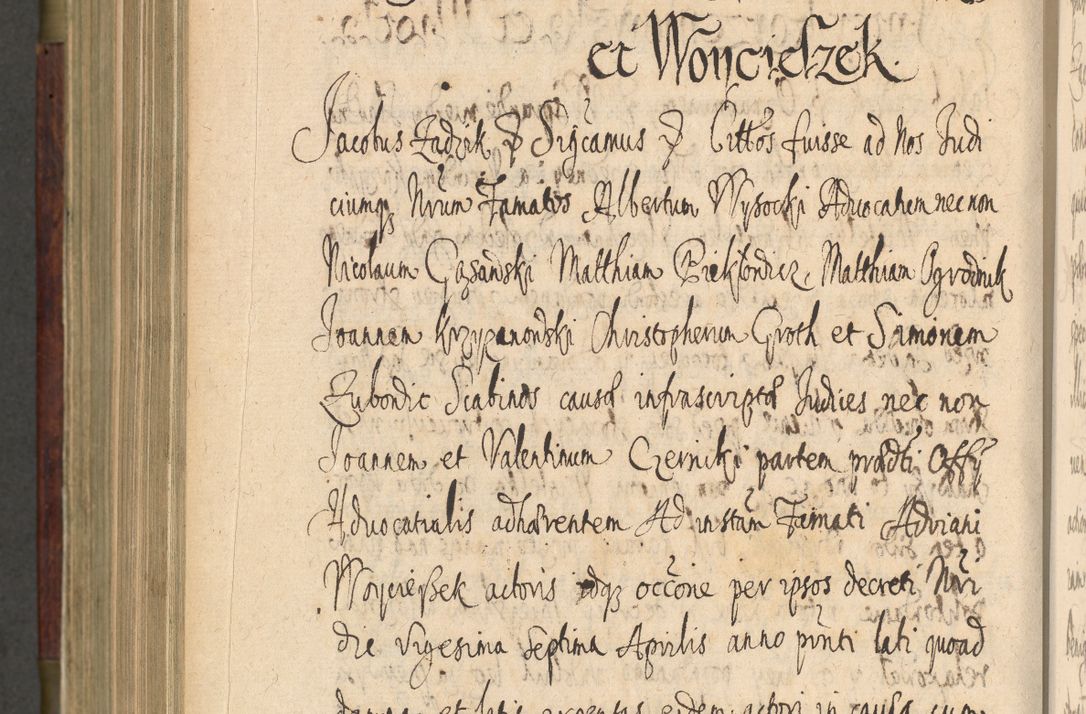 et Woycieszek.
Jacobus Zadzik & Sigcamus & Cittos fuisse ad Nos Judi
ciumq3 Nrum Famatos Albertum Wysocki Advocatum nec non
Nicolaum Gąsawski Matthiam Piekłondicz, Matthiam Ogrodnik
Joannem Krzyżanowski Christopherum Groth et Simonem
Zubowic Scabinos causæ infrascriptæ Judices nec non
Joannem et Valentinum Czerniki partem prædti Offÿ
Advocatialis adhærentem Ad instam Famati Adriani
Woycieszek actoris idq3 occone per ipsos decreti Nri
die vigesima septima Aprilis anno pnti lati quoad
et latis eidem actori in causa cum